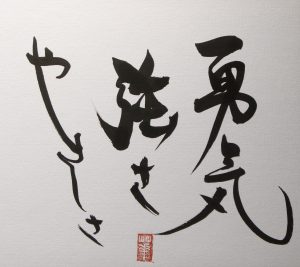 勇気
強さ
やさしさ